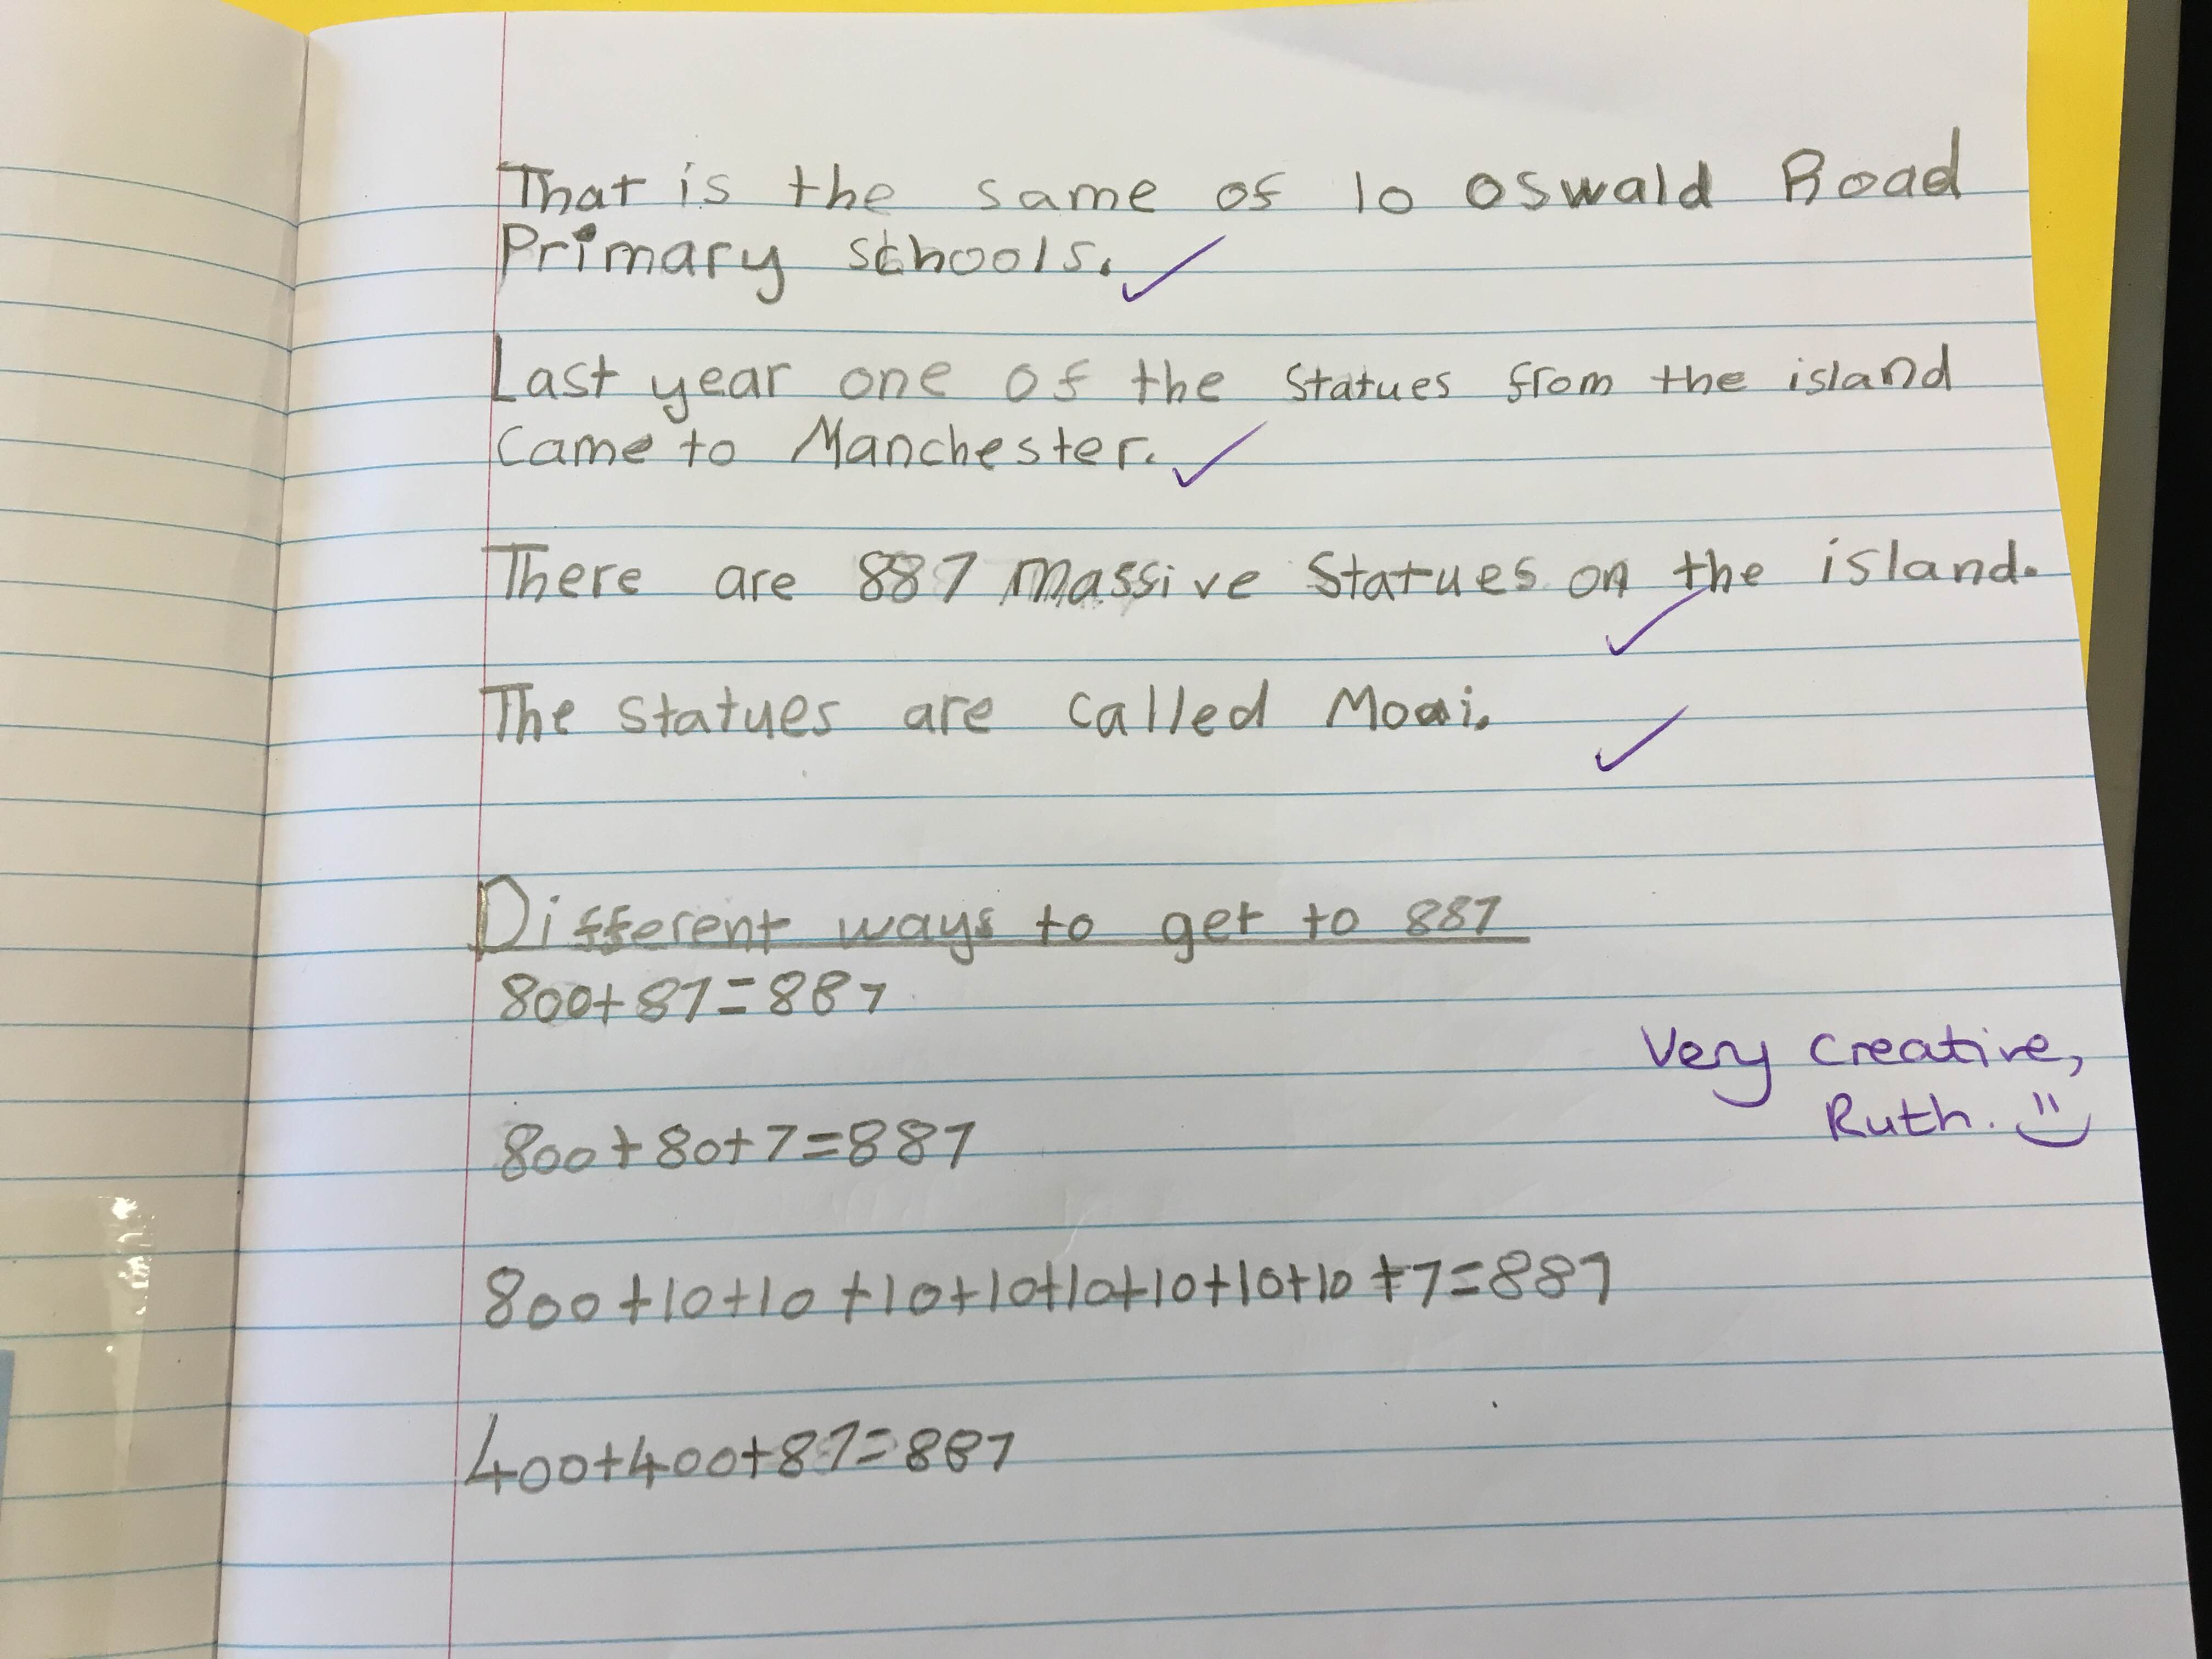 That is the same of 10 Oswald Road
Primary schools.
Last year one of the statues from the island
came to Manchester.
There are 887 massive statues on the island.
The statues are called Moai.
Different ways to get to 887
800+87=887
Very creative,
Ruth.
800+80+7=887
800+10+10+10+10+10+10+10+10+7=887
400+400+87=887